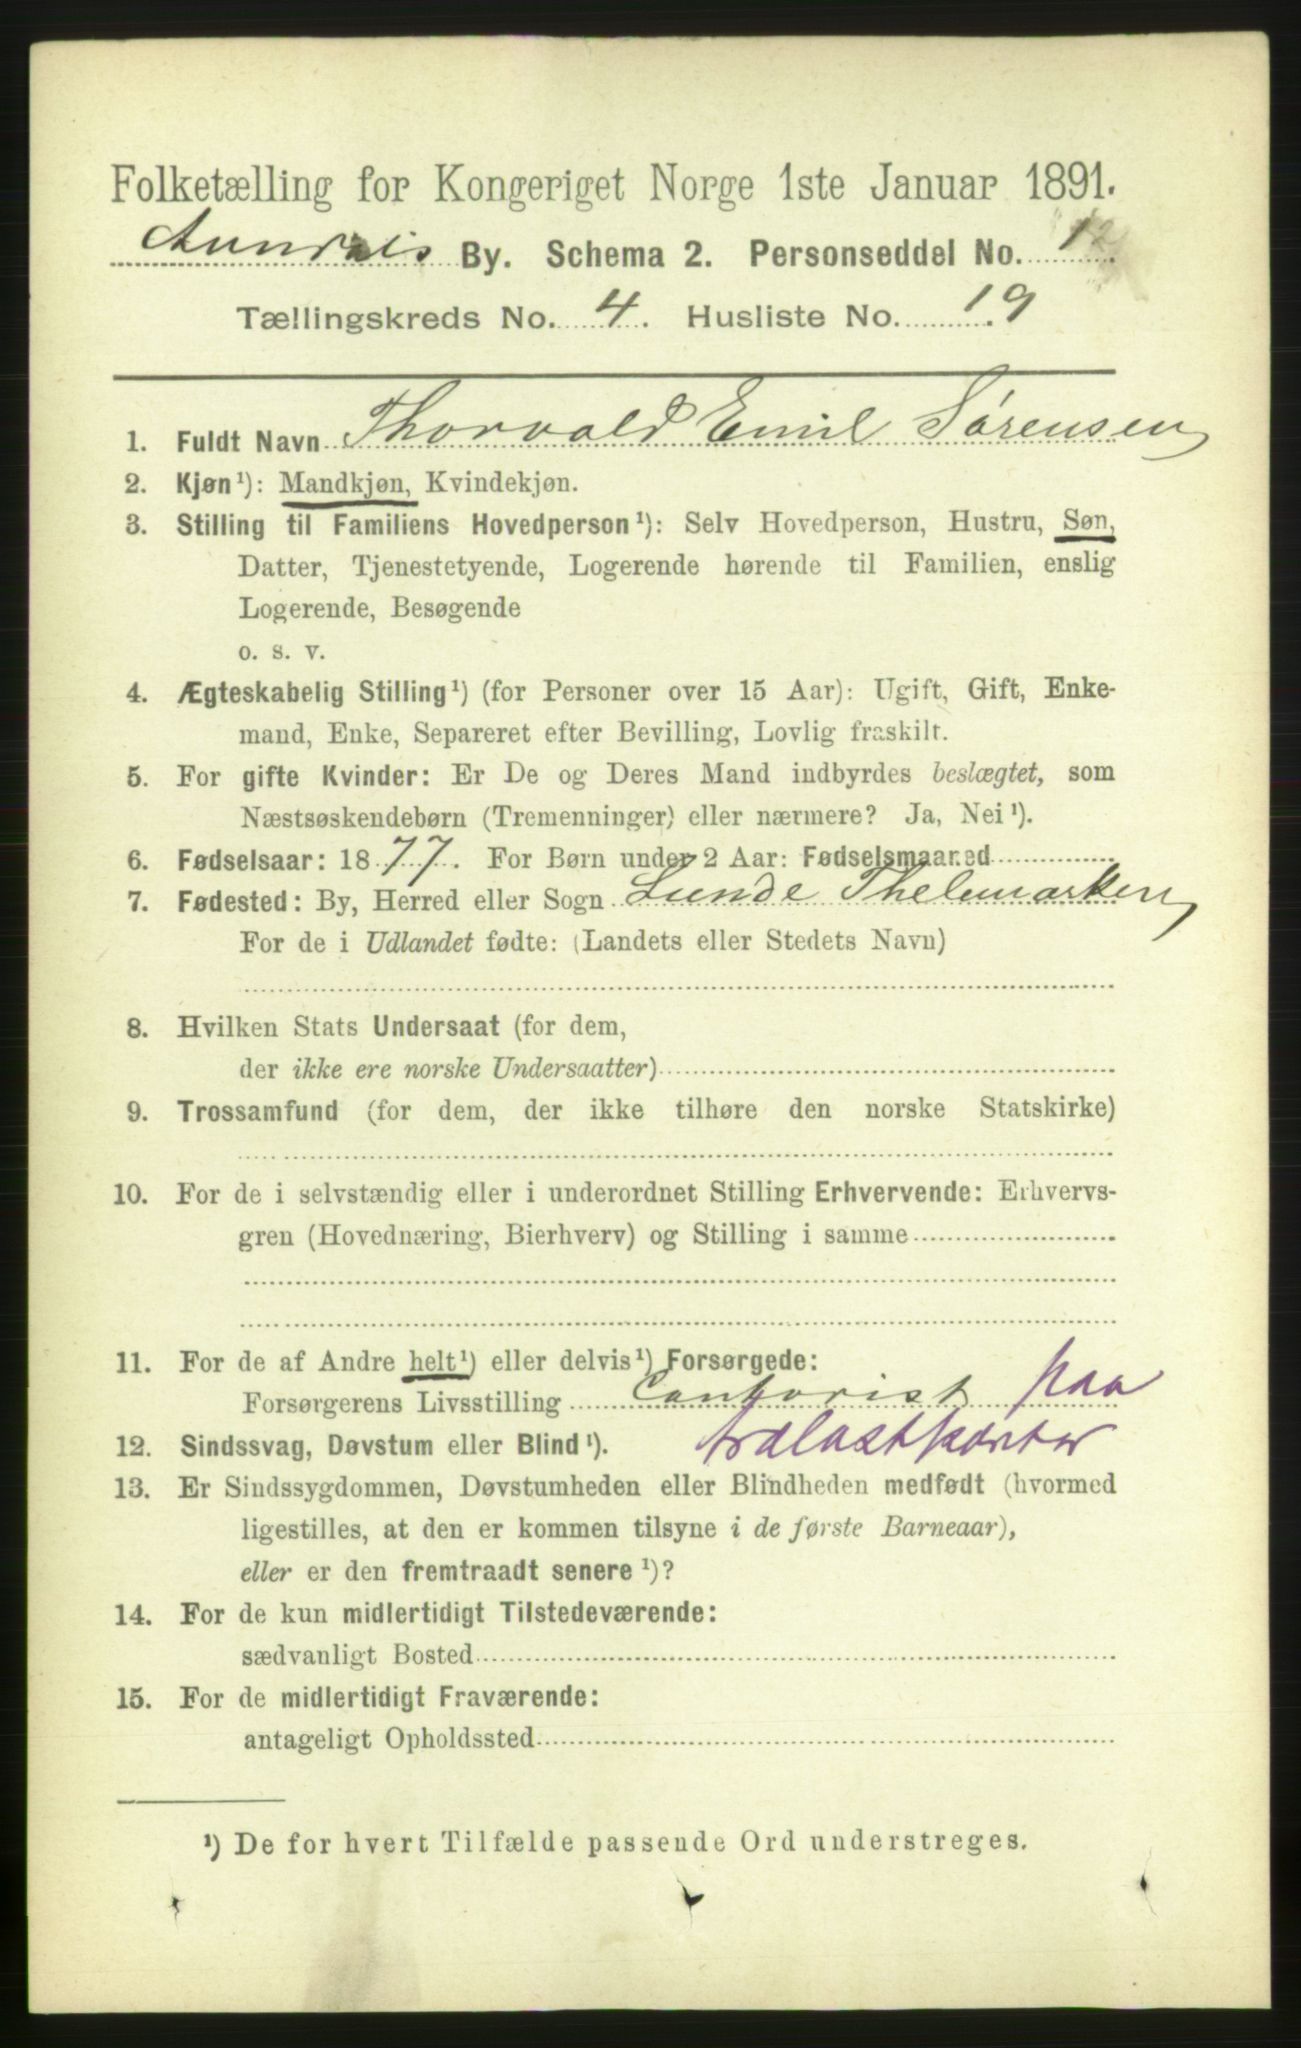 Folketælling for Kongeriget Norge 1ste Januar 1891.
Arendals By. Schema 2. Personseddel No. 12
Tællingskreds No. 4. Husliste No. 19
1. Fuldt Navn Thorvald Emil Sørensen
2. Kjøn¹): Mandkjøn, Kvindekjøn.
3. Stilling til Familiens Hovedperson¹): Selv Hovedperson, Hustru, Søn,
Datter, Tjenestetyende, Logerende hørende til Familien, enslig
Logerende, Besøgende
o. s. v.
4. Ægteskabelig Stilling¹) (for Personer over 15 Aar): Ugift, Gift, Enke-
mand, Enke, Separeret efter Bevilling, Lovlig fraskilt.
5. For gifte Kvinder: Er De og Deres Mand indbyrdes beslægtet, som
Næstsøskendebørn (Tremenninger) eller nærmere? Ja, Nei¹).
6. Fødselsaar: 1877. For Børn under 2 Aar: Fødselsmaaned
7. Fødested: By, Herred eller Sogn Lunde Thelemarken
For de i Udlandet fødte: (Landets eller Stedets Navn)
8. Hvilken Stats Undersaat (for dem,
der ikke ere norske Undersaatter)
9. Trossamfund (for dem, der ikke tilhøre den norske Statskirke)
10. For de i selvstændig eller i underordnet Stilling Erhvervende: Erhvervs-
gren (Hovednæring, Bierhverv) og Stilling i samme
11. For de af Andre helt¹) eller delvis¹) Forsørgede:
Forsørgerens Livsstilling Contorist paa
trælastkontor
12. Sindssvag, Døvstum eller Blind¹).
13. Er Sindssygdommen, Døvstumheden eller Blindheden medfødt (hvormed
ligestilles, at den er kommen tilsyne i de første Barneaar),
eller er den fremtraadt senere¹)?
14. For de kun midlertidigt Tilstedeværende:
sædvanligt Bosted
15. For de midlertidigt Fraværende:
antageligt Opholdssted
¹) De for hvert Tilfælde passende Ord understreges.